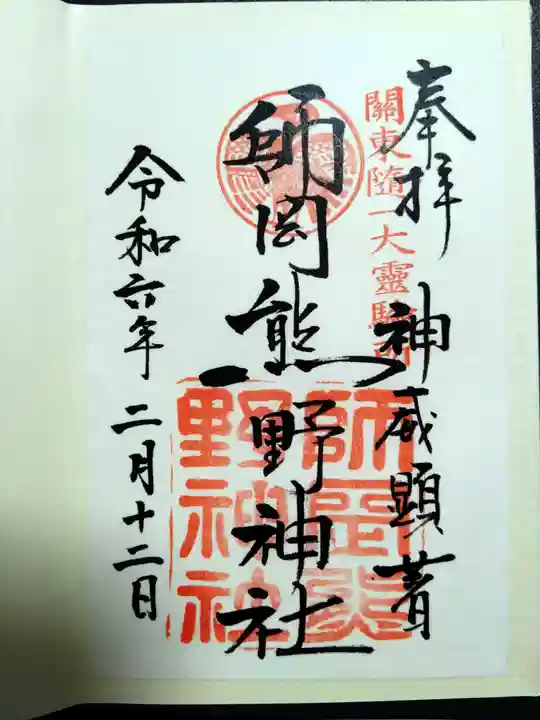 奉拝
關東随一大靈験所
神威顕著
師岡熊野神社
師岡熊野神社
令和六年二月十二日